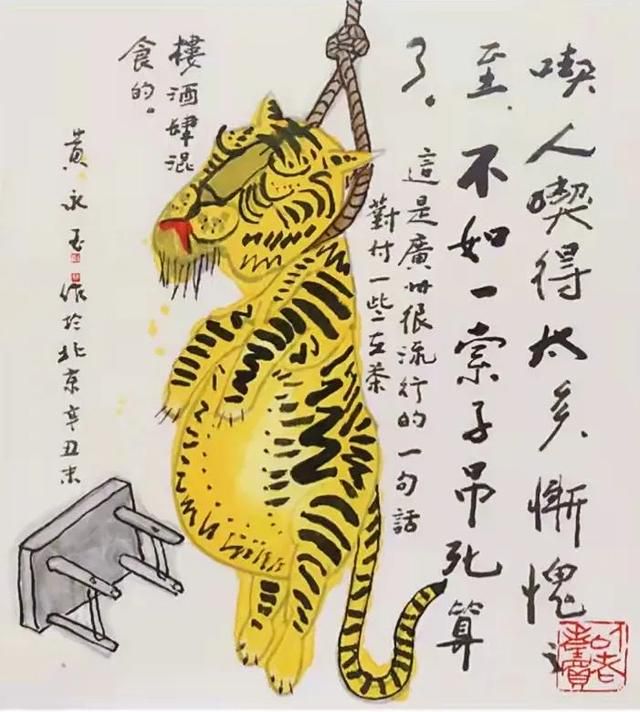 喫人喫得太多慚愧之
至不如一索子吊死算
了。
這是廣州很流行的一句話
對付一些在茶
樓酒肆混
食的。
黃永玉作於北京辛丑末